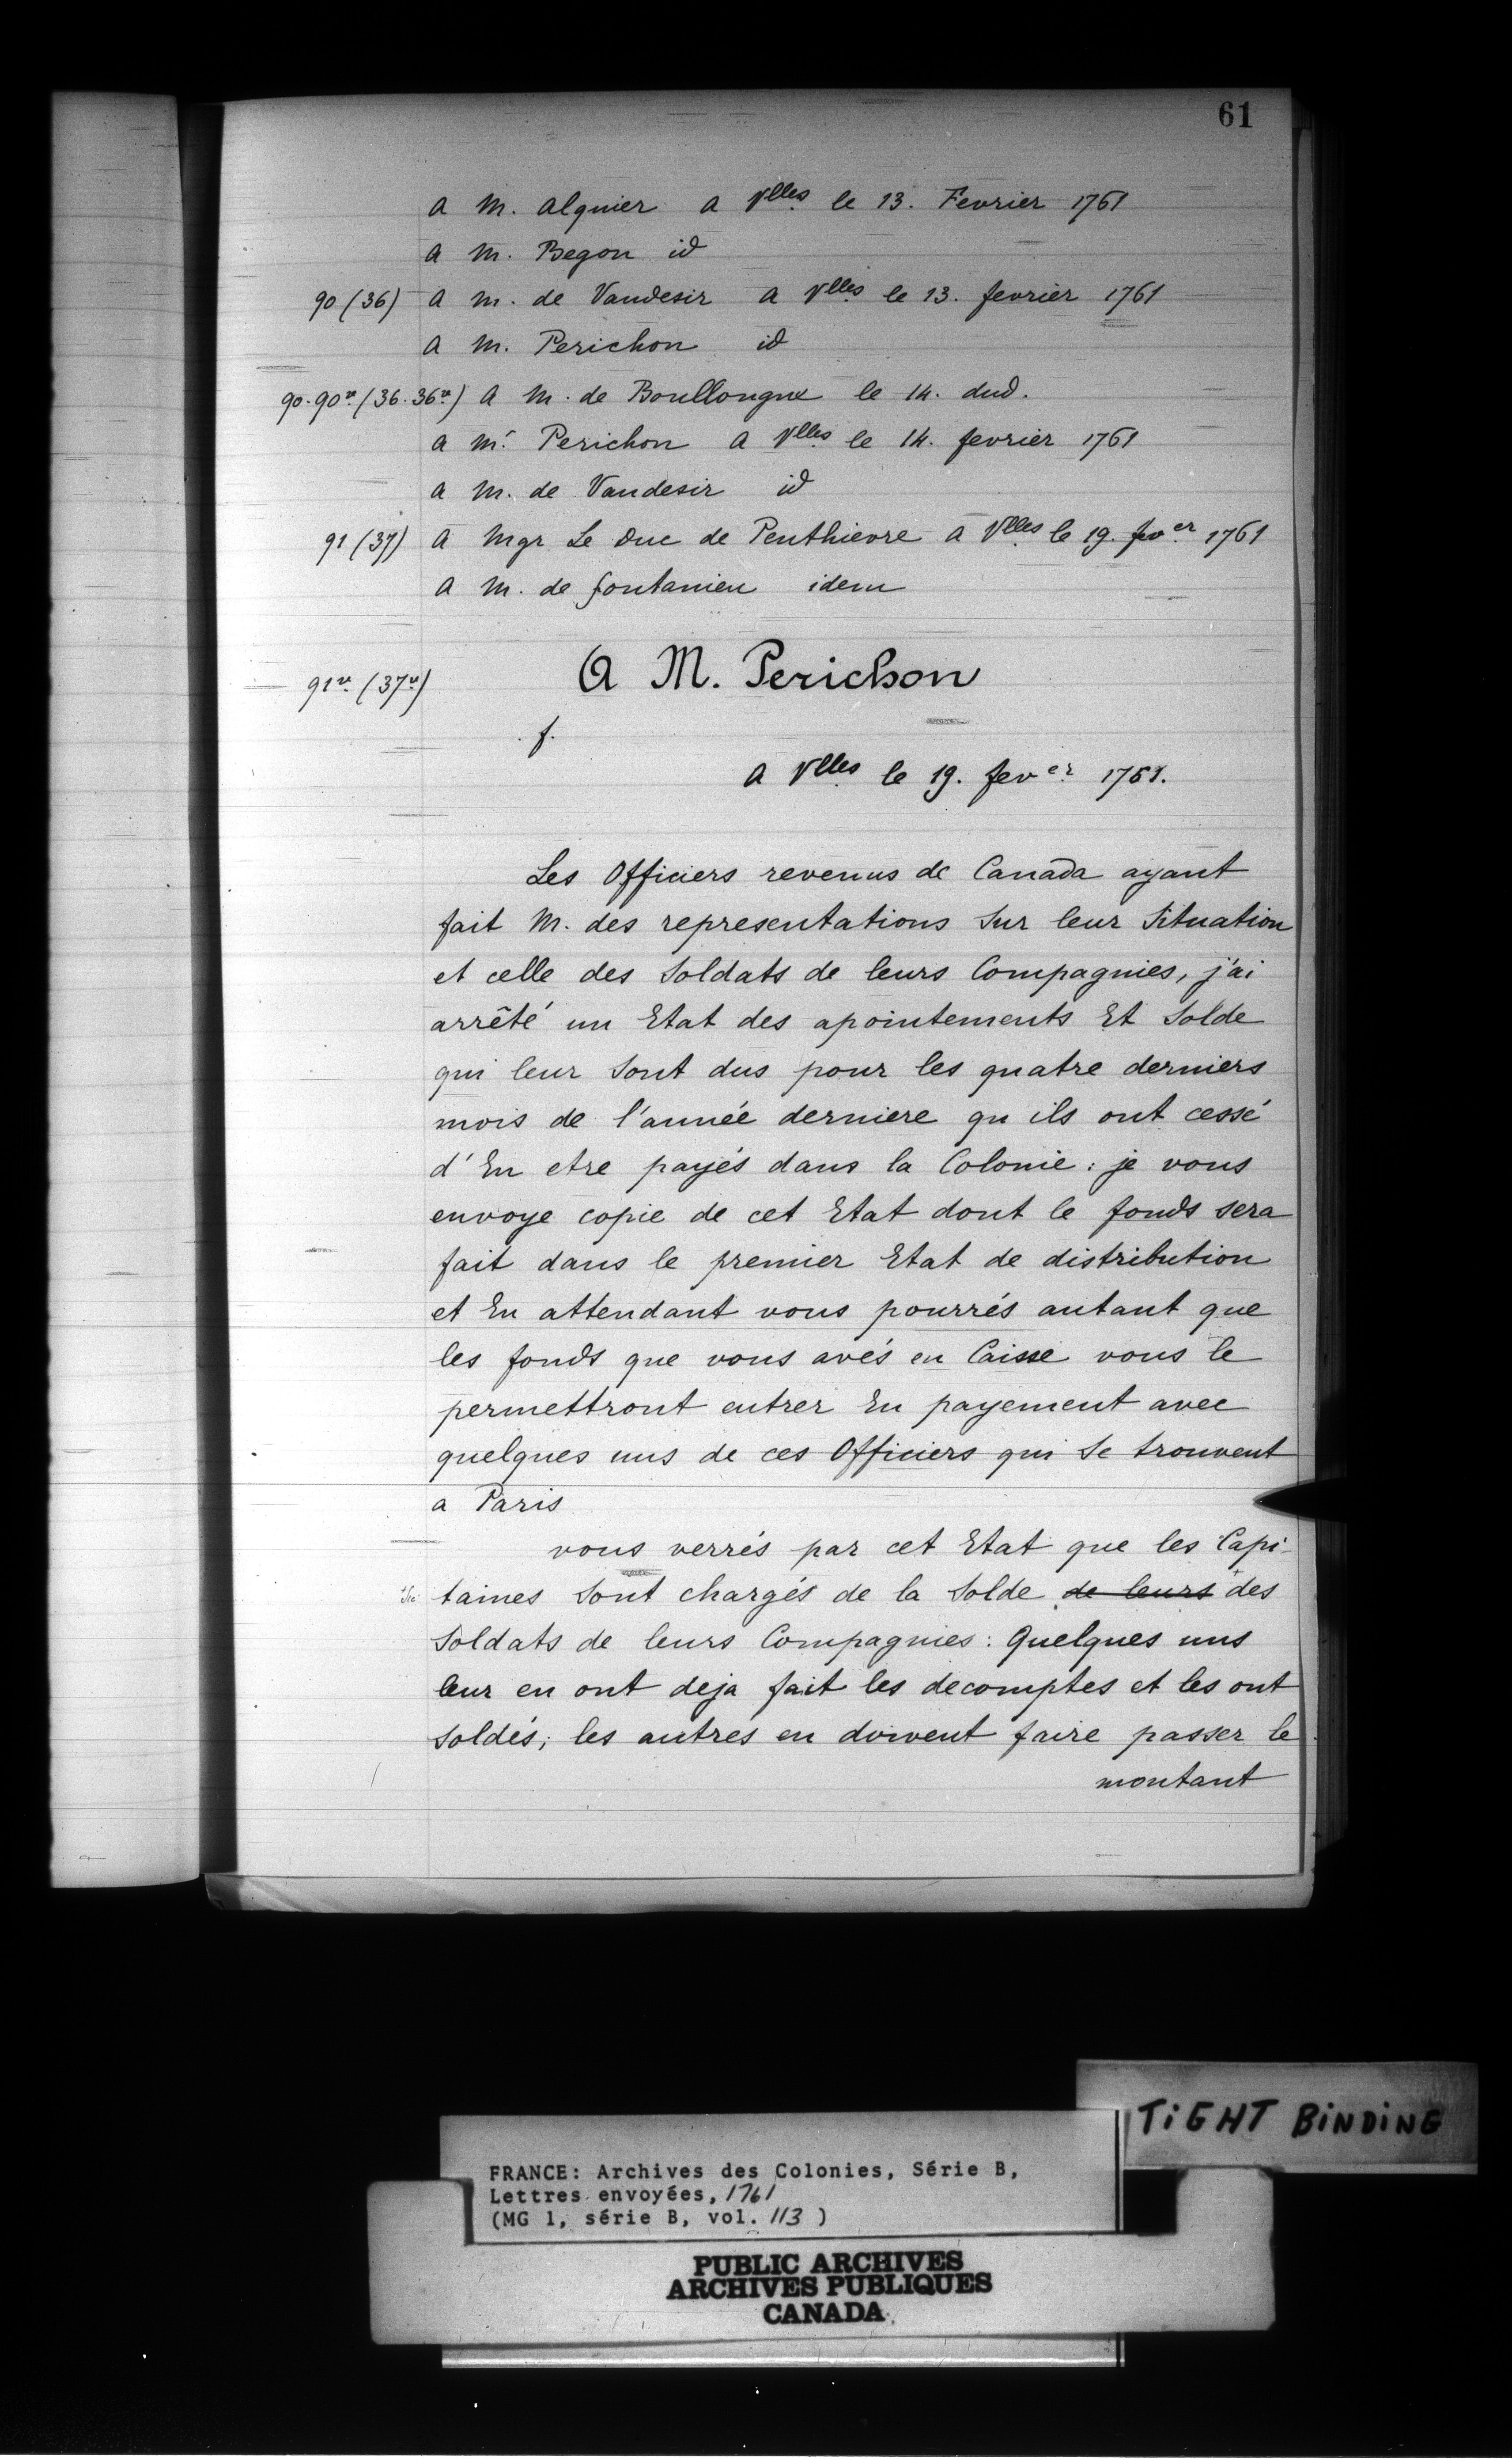 61
a M. alquier a Vlles le 13. Fevrier 1761
a M. Begon id
90 (36) a M. de Vaudesir a Vlles le 13. fevrier 1761
a M. Perichon id
90.90vo (36.36vo) a M. de Boullongne le 14. dud.
a Mr Perichon a Vlles le 14. fevrier 1761
a M. de Vaudesir id
91 (37) a Mgr Le Duc de Penthievre a Vlles le 19. fever 1761
a M. de fontanieu idem
91vo (37vo) A M. Perichon
f.
a Vlles le 19. fever 1761.
Les Officiers revenus de Canada ayant
fait M. des representations Sur leur Situation
et celle des Soldats de leurs Compagnies, j'ai
arrêté un Etat des apointements Et Solde
qui leur Sont dus pour les quatre derniers
mois de l'année derniere qu ils ont cessé
d'En etre payés dans la Colonie : je vous
envoye copie de cet Etat dont le fonds sera
fait dans le premier Etat de distribution
et En attendant vous pourrés autant que
les fonds que vous avés en Caisse vous le
permettront entrer En payement avec
quelques uns de ces Officiers qui Se trouvent
a Paris
vous verrés par cet Etat que les Capi-
taines Sont chargés de la Solde de leurs des
Soldats de leurs Compagnies : Quelques uns
leur en ont deja fait les decomptes et les ont
Soldés ; les autres en doivent faire passer le
montant
TIGHT BINDING
FRANCE: Archives des Colonies, Série B,
Lettres envoyées, 1761
(MG 1, série B, vol. 113 )
PUBLIC ARCHIVES
ARCHIVES PUBLIQUES
CANADA